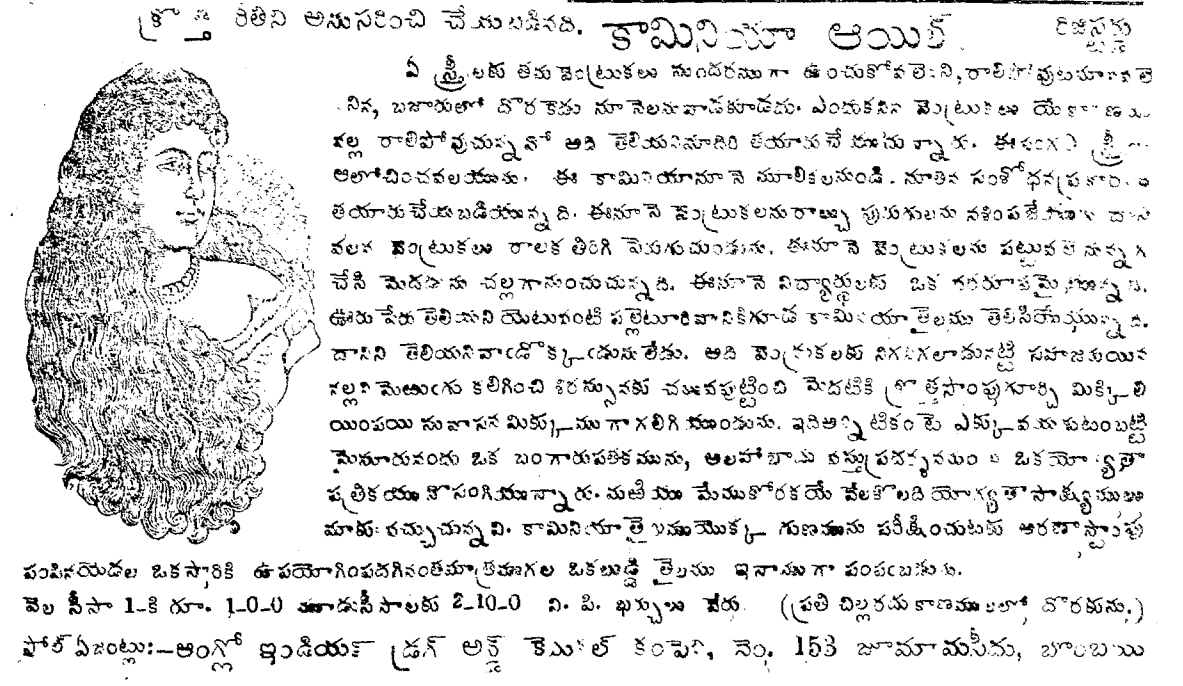 క్రొత్త రీతిని అనుసరించి చేయబడినది. కామినియా ఆయిల్ రిజిస్టర్డు
ఏ స్త్రీలకు తమ వెంట్రుకలు సుందరముగా ఉంచుకోవలెనని, రాలిపోవుట మానవలె
నన్న, బజారులో దొరకెడు నూనెలను వాడకూడదు. ఎందుకనిన వెంట్రుకలు యే కారణము
వల్ల రాలిపోవుచున్నవో అది తెలియనిమాదిరి తయారుచేయుచున్నారు. ఈ సంగతి స్త్రీలు
ఆలోచించవలయును. ఈ కామినియా నూనె మూలికలనుండి నూతన సంశోధన ప్రకారము
తయారుచేయబడియున్నది. ఈ నూనె వెంట్రుకలను రాల్చు పురుగులను నశింపజేసి దాని
వలన వెంట్రుకలు రాలక తిరిగి పెరుగుచుండును. ఈ నూనె వెంట్రుకలను పట్టువలె నున్నగ
చేసి మెదడును చల్లగానుంచుచున్నది. ఈ నూనె విద్యార్థులకు ఒక వరరూపమైయున్నది.
ఊరు పేరు తెలియని యెటువంటి పల్లెటూరివానికిగూడ కామినియా తైలము తెలిసియేయున్నది.
దానిని తెలియనివాఁడొక్కఁడును లేడు. అది వెంట్రుకలకు నిగనిగలాడునట్టి సహజమయిన
నల్లని మెఱుఁగు కలిగించి శిరస్సునకు చలువపుట్టించి మెదటికి క్రొత్తసొంపుగూర్చి మిక్కిలి
యింపయి సువాసన మిక్కుముగా గలిగియుండును. ఇది అన్నిటికంటె ఎక్కువ మెరుగుటంబట్టి
మైసూరునందు ఒక బంగారుపతకమును, అలహాబాదు వస్తుప్రదర్శనమందు ఒక యోగ్యతా
పత్రికయు నొసంగియున్నారు. మఱియు మేముకోరకయే వేలకొలది యోగ్యతాసాక్ష్యములు
మాకు వచ్చుచున్నవి. కామినియా తైలముయొక్క గుణమును పరీక్షించుటకు ఆరణాస్టాంపు
పంపినయెడల ఒకసారికి ఉపయోగింపదగినంతమాత్రముగల ఒకబుడ్డి తైలము ఇనాముగా పంపఁబడును.
వెల సీసా 1-కి రూ. 1-0-0 మూడుసీసాలకు 2-10-0 వి. పి. ఖర్చులు వేరు. (ప్రతి చిల్లరదుకాణములలో దొరకును.)
సోల్ ఏజంట్లు:—ఆంగ్లో ఇండియన్ డ్రగ్ అన్డ్ కెమికల్ కంపెని, నెం. 153 జూమా మసీదు, బొంబాయి